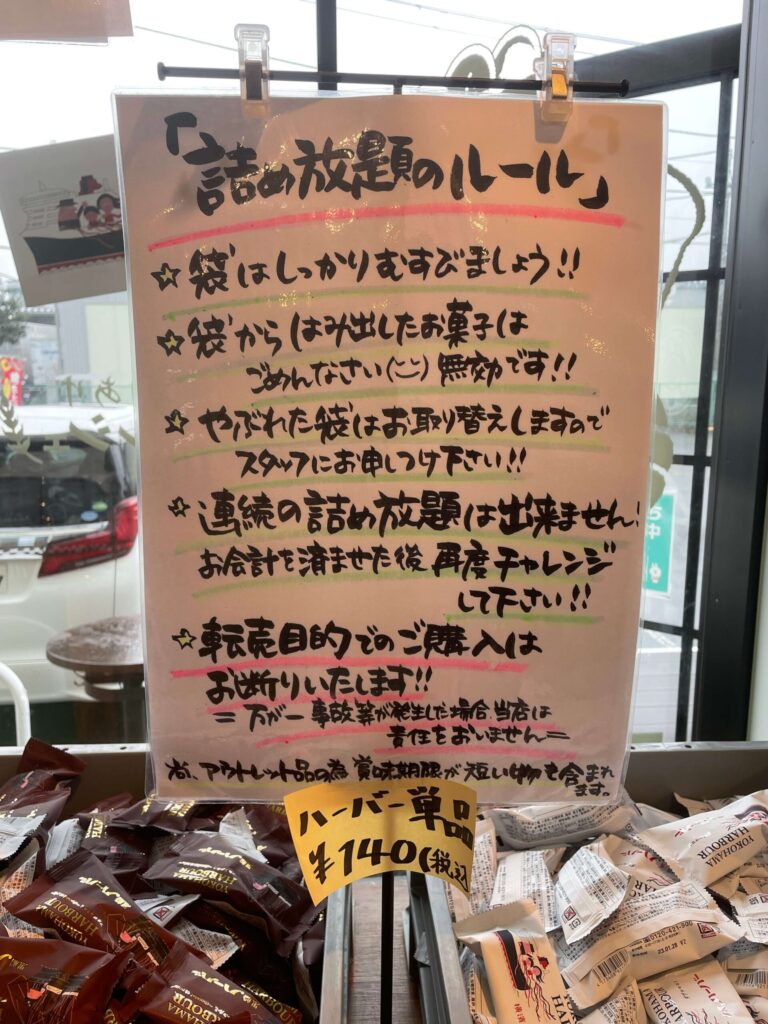 「詰め放題のルール」
☆袋はしっかりむすびましょう!!
☆袋からはみ出したお菓子は
ごめんなさい(¨)無効です!!
☆やぶれた袋はお取り替えしますので
スタッフにお申しつけ下さい!!
☆連続の詰め放題は出来ません!
お会計を済ませた後 再度チャレンジ
して下さい!!
☆転売目的でのご購入は
お断りいたします!!
=万が一事故等が発生した場合、当店は
責任をおいません=
尚、アウトレット品の為 賞味期限が短い物も含まれ
ます。
ハーバー単品
¥140(税込
YOKOHAMA
HARBOUR
YOKOHAMA
HARBOUR
YOKOHAMA
HARBOUR
0120-421-900
23.01.28 V2